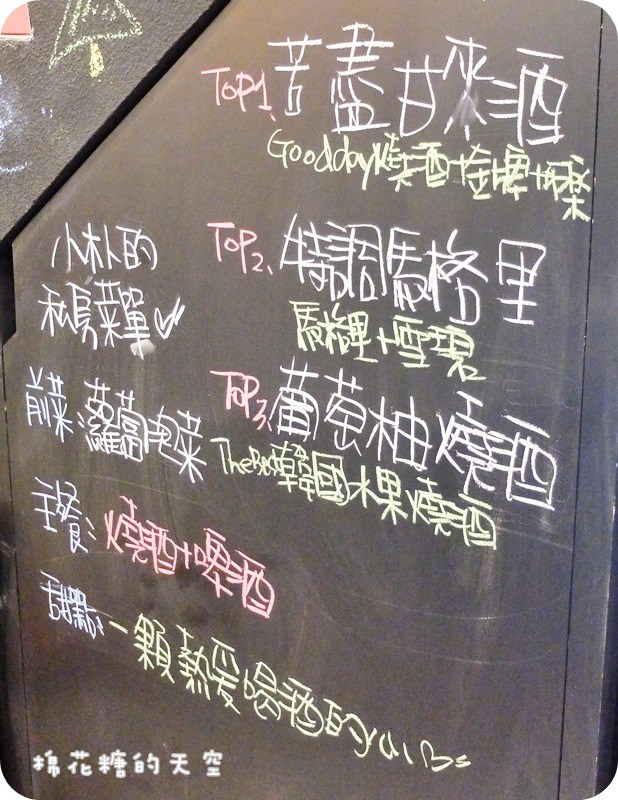 TOP1、苦盡甘來酒
Goodday燒酒+金車+可樂
TOP2、特調馬格里
馬格里+雪碧
TOP3、葡萄柚燒酒
韓國水果燒酒
小朴的
私房菜單
前菜 蘿蔔泡菜
主餐：燒酒+啤酒
甜點：一顆熱愛喝酒的
棉花糖的天空